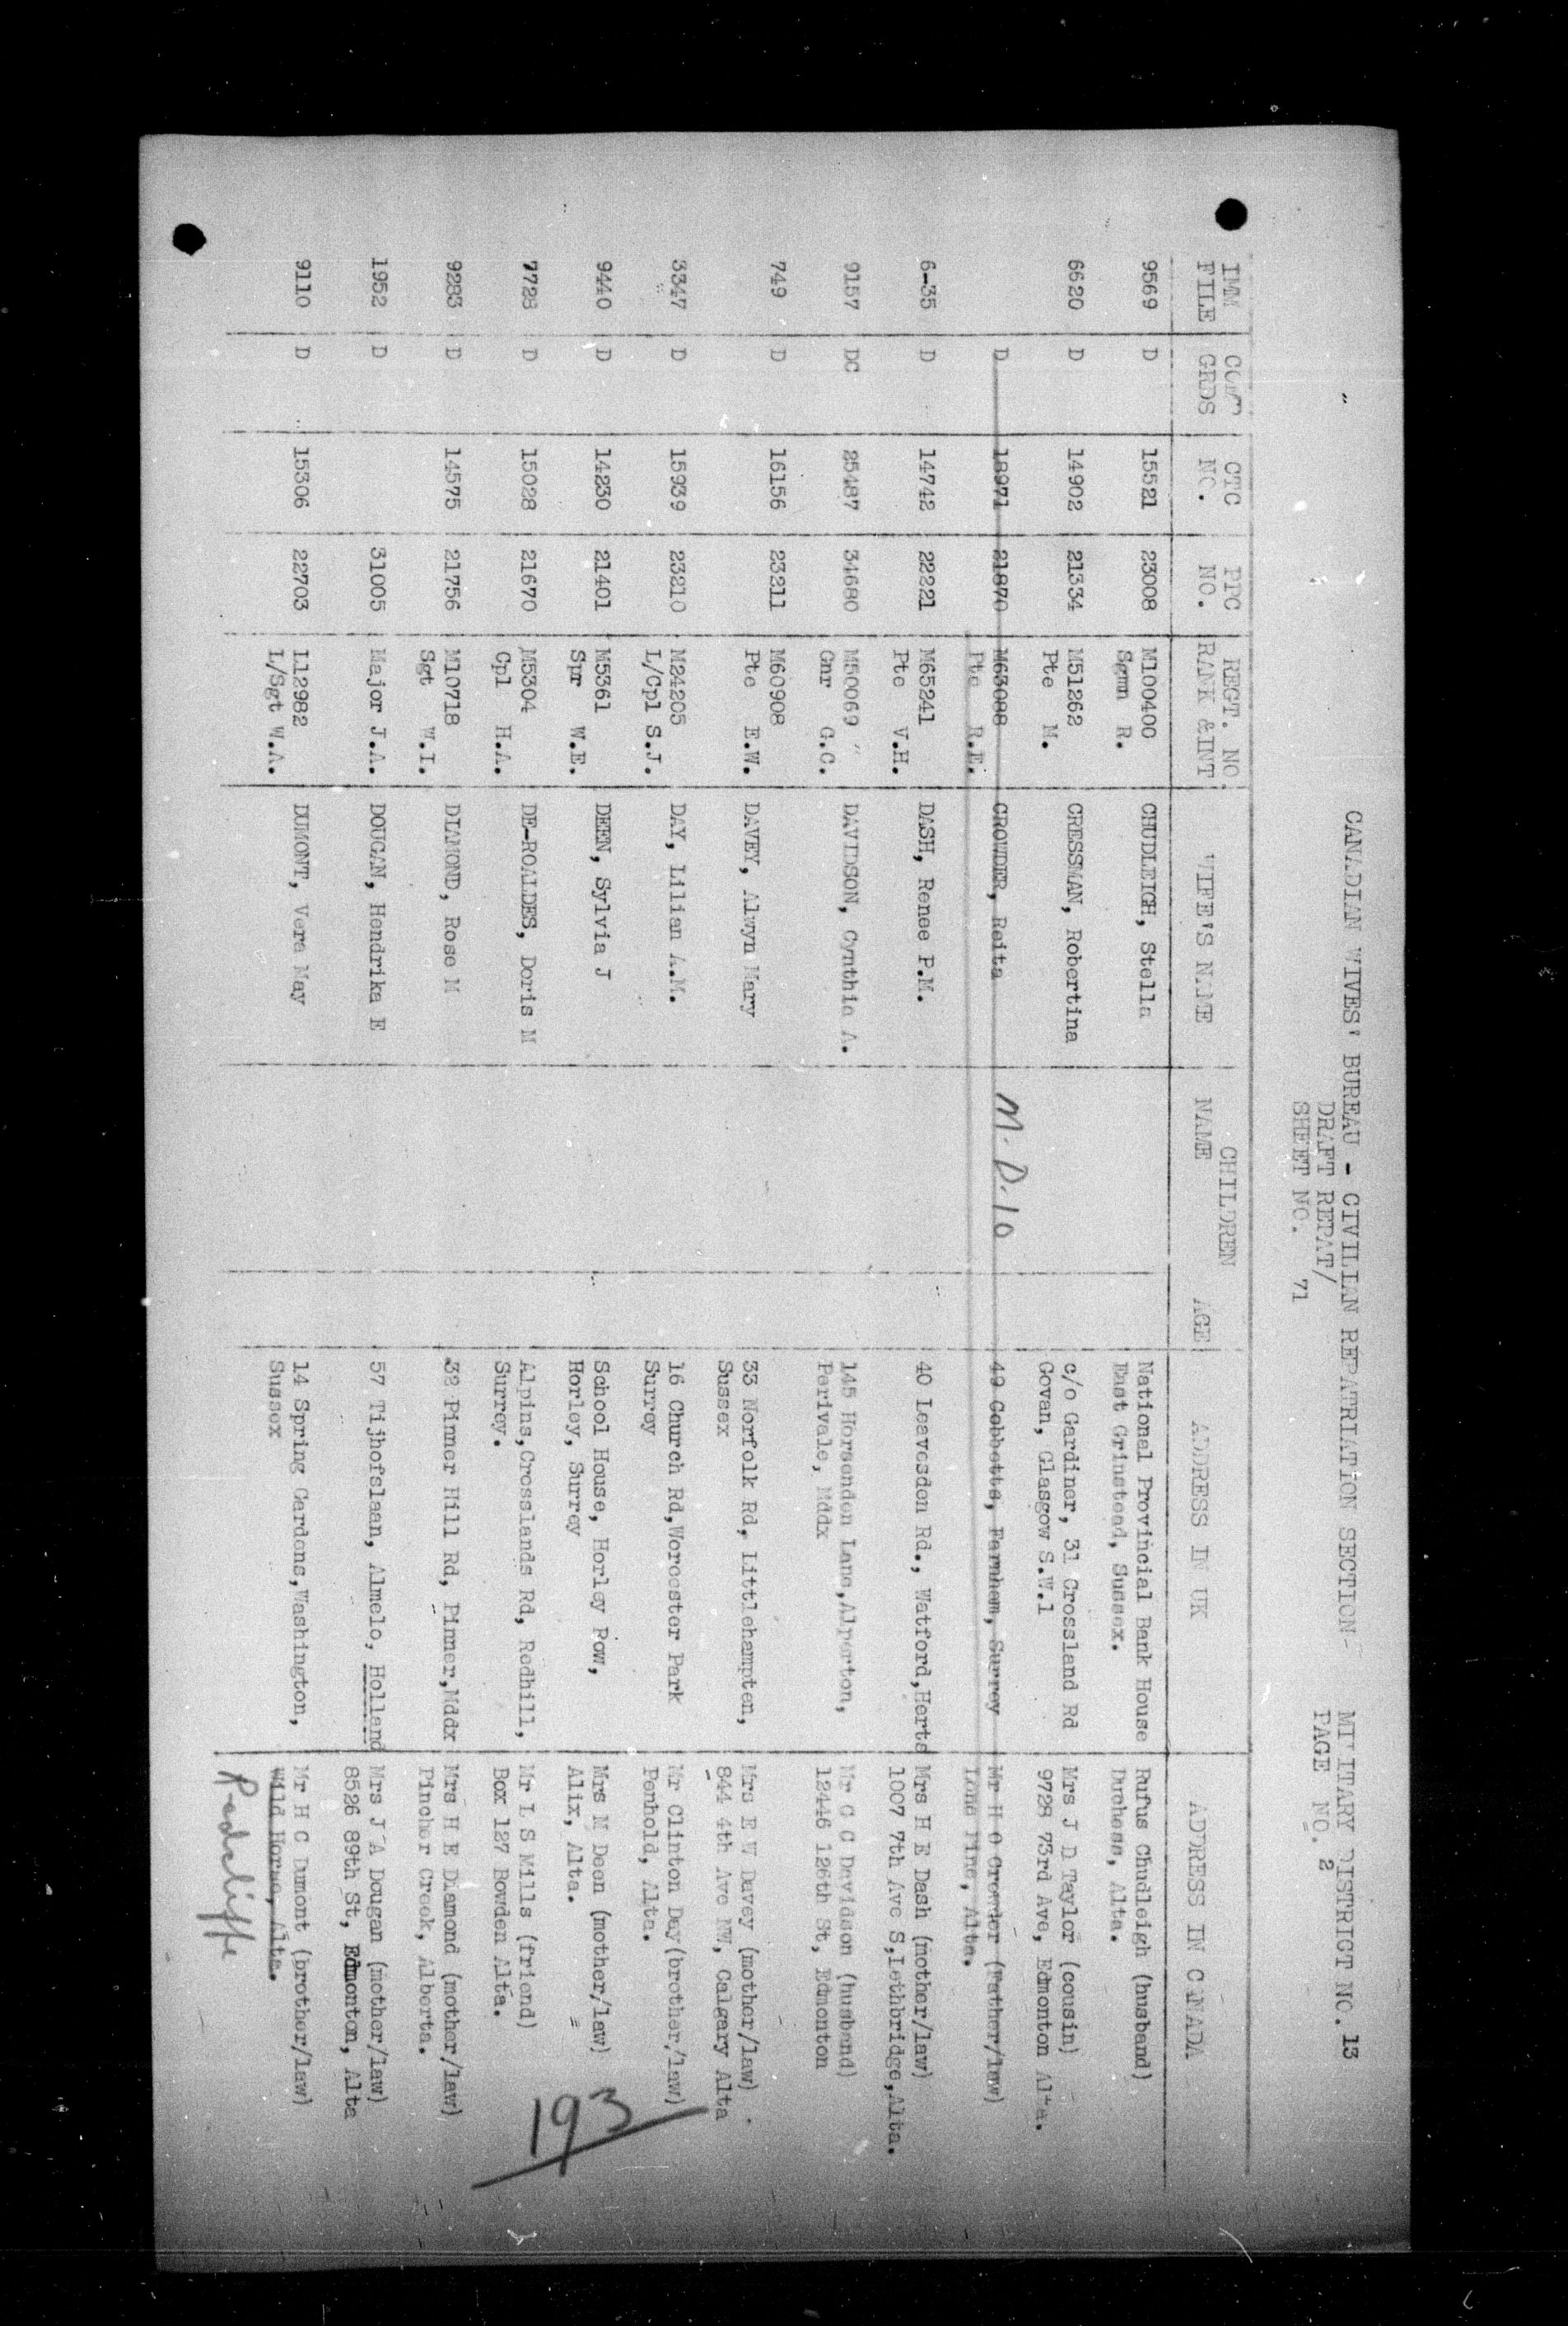 CANADIAN WIVES' BUREAU - CIVILIAN REPATRIATION SECTION- MILITARY DISTRICT NO. 13
DRAFT REPAT/ PAGE NO. 2
SHEET NO. 71
IMM COMP CTC PPC REGT. NO CHILDREN
FILE GRDS NO. NO. RANK &INT WIFE'S NAME NAME AGE ADDRESS IN UK ADDRESS IN CANADA
9569 D 15521 23008 M100400 CHUDLEIGH, Stella National Provincial Bank House Rufus Chudleigh (husband)
Sgmn R. East Grinstead, Sussex. Duchess, Alta.
6620 D 14902 21334 M51262 CRESSMAN, Robertina c/o Gardiner, 31 Crossland Rd Mrs J D Taylor (cousin)
Pte M. Govan, Glasgow S.W.1 9728 73rd Ave, Edmonton Alta.
D 18971 21870 M63088 CROWDER, Reita M.D.10 49 Cobbetts, Farnham, Surrey Mr H O Crowder (Father/law)
Pte R.E. Lone Pine, Alta.
6-35 D 14742 22221 M65241 DASH, Renee P.M. 40 Leavesden Rd., Watford,Herts Mrs H E Dash (mother/law)
Pte V.H. 1007 7th Ave S,Lethbridge,Alta.
9157 DC 25487 34680 M50069 DAVIDSON, Cynthia A. 145 Horsenden Lane,Alperton, Mr G C Davidson (husband)
Gnr G.C. Perivale, Mddx 12446 126th St, Edmonton
749 D 16156 23211 M60908 DAVEY, Alwyn Mary 33 Norfolk Rd, Littlehampten, Mrs E W Davey (mother/law)
Pte E.W. Sussex 844 4th Ave NW, Calgary Alta
3347 D 15939 23210 M24205 DAY, Lilian A.M. 16 Church Rd,Worcester Park Mr Clinton Day(brother/law)
L/Cpl S.J. Surrey Penhold, Alta.
9440 D 14230 21401 M5361 DEEN, Sylvia J School House, Horley Row, Mrs M Deen (mother/law)
Spr W.E. Horley, Surrey Alix, Alta.
7728 D 15028 21670 M5304 DE-ROALDES, Doris M Alpins,Crosslands Rd, Redhill, Mr L S Mills (friend)
Cpl H.A. Surrey. Box 127 Bowden Alta.
193
9283 D 14575 21756 M10718 DIAMOND, Rose M 32 Pinner Hill Rd, Pinner,Mddx Mrs H E Diamond (mother/law)
Sgt W.I. Pincher Creek, Alberta.
1952 D 31005 Major J.A. DOUGAN, Hendrika E 57 Tijhofslaan, Almelo, Holland Mrs J A Dougan (mother/law)
8526 89th St, Edmonton, Alta
9110 D 15306 22703 L12982 DUMONT, Vera May 14 Spring Gardens,Washington, Mr H C Dumont (brother/law)
L/Sgt W.A. Sussex Wild Horse, Alta.
Redcliffe